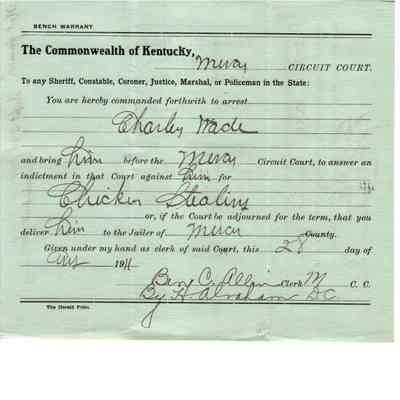 BENCH WARRANT
The Commonwealth of Kentucky,
Mercer CIRCUIT COURT.
To any Sheriff, Constable, Coroner, Justice, Marshal, or Policeman in the State:
You are hereby commanded forthwith to arrest
Charley Wade
and bring him before the Mercer Circuit Court, to answer an
indictment in that Court against him for
Chicken Stealing
or, if the Court be adjourned for the term, that you
deliver him to the Jailer of Mercer County.
Given under my hand as clerk of said Court, this 28 day of
Aug 1911
Ben C. Allin Clerk M C. C.
By H Abraham D.C.
The Herald Print.